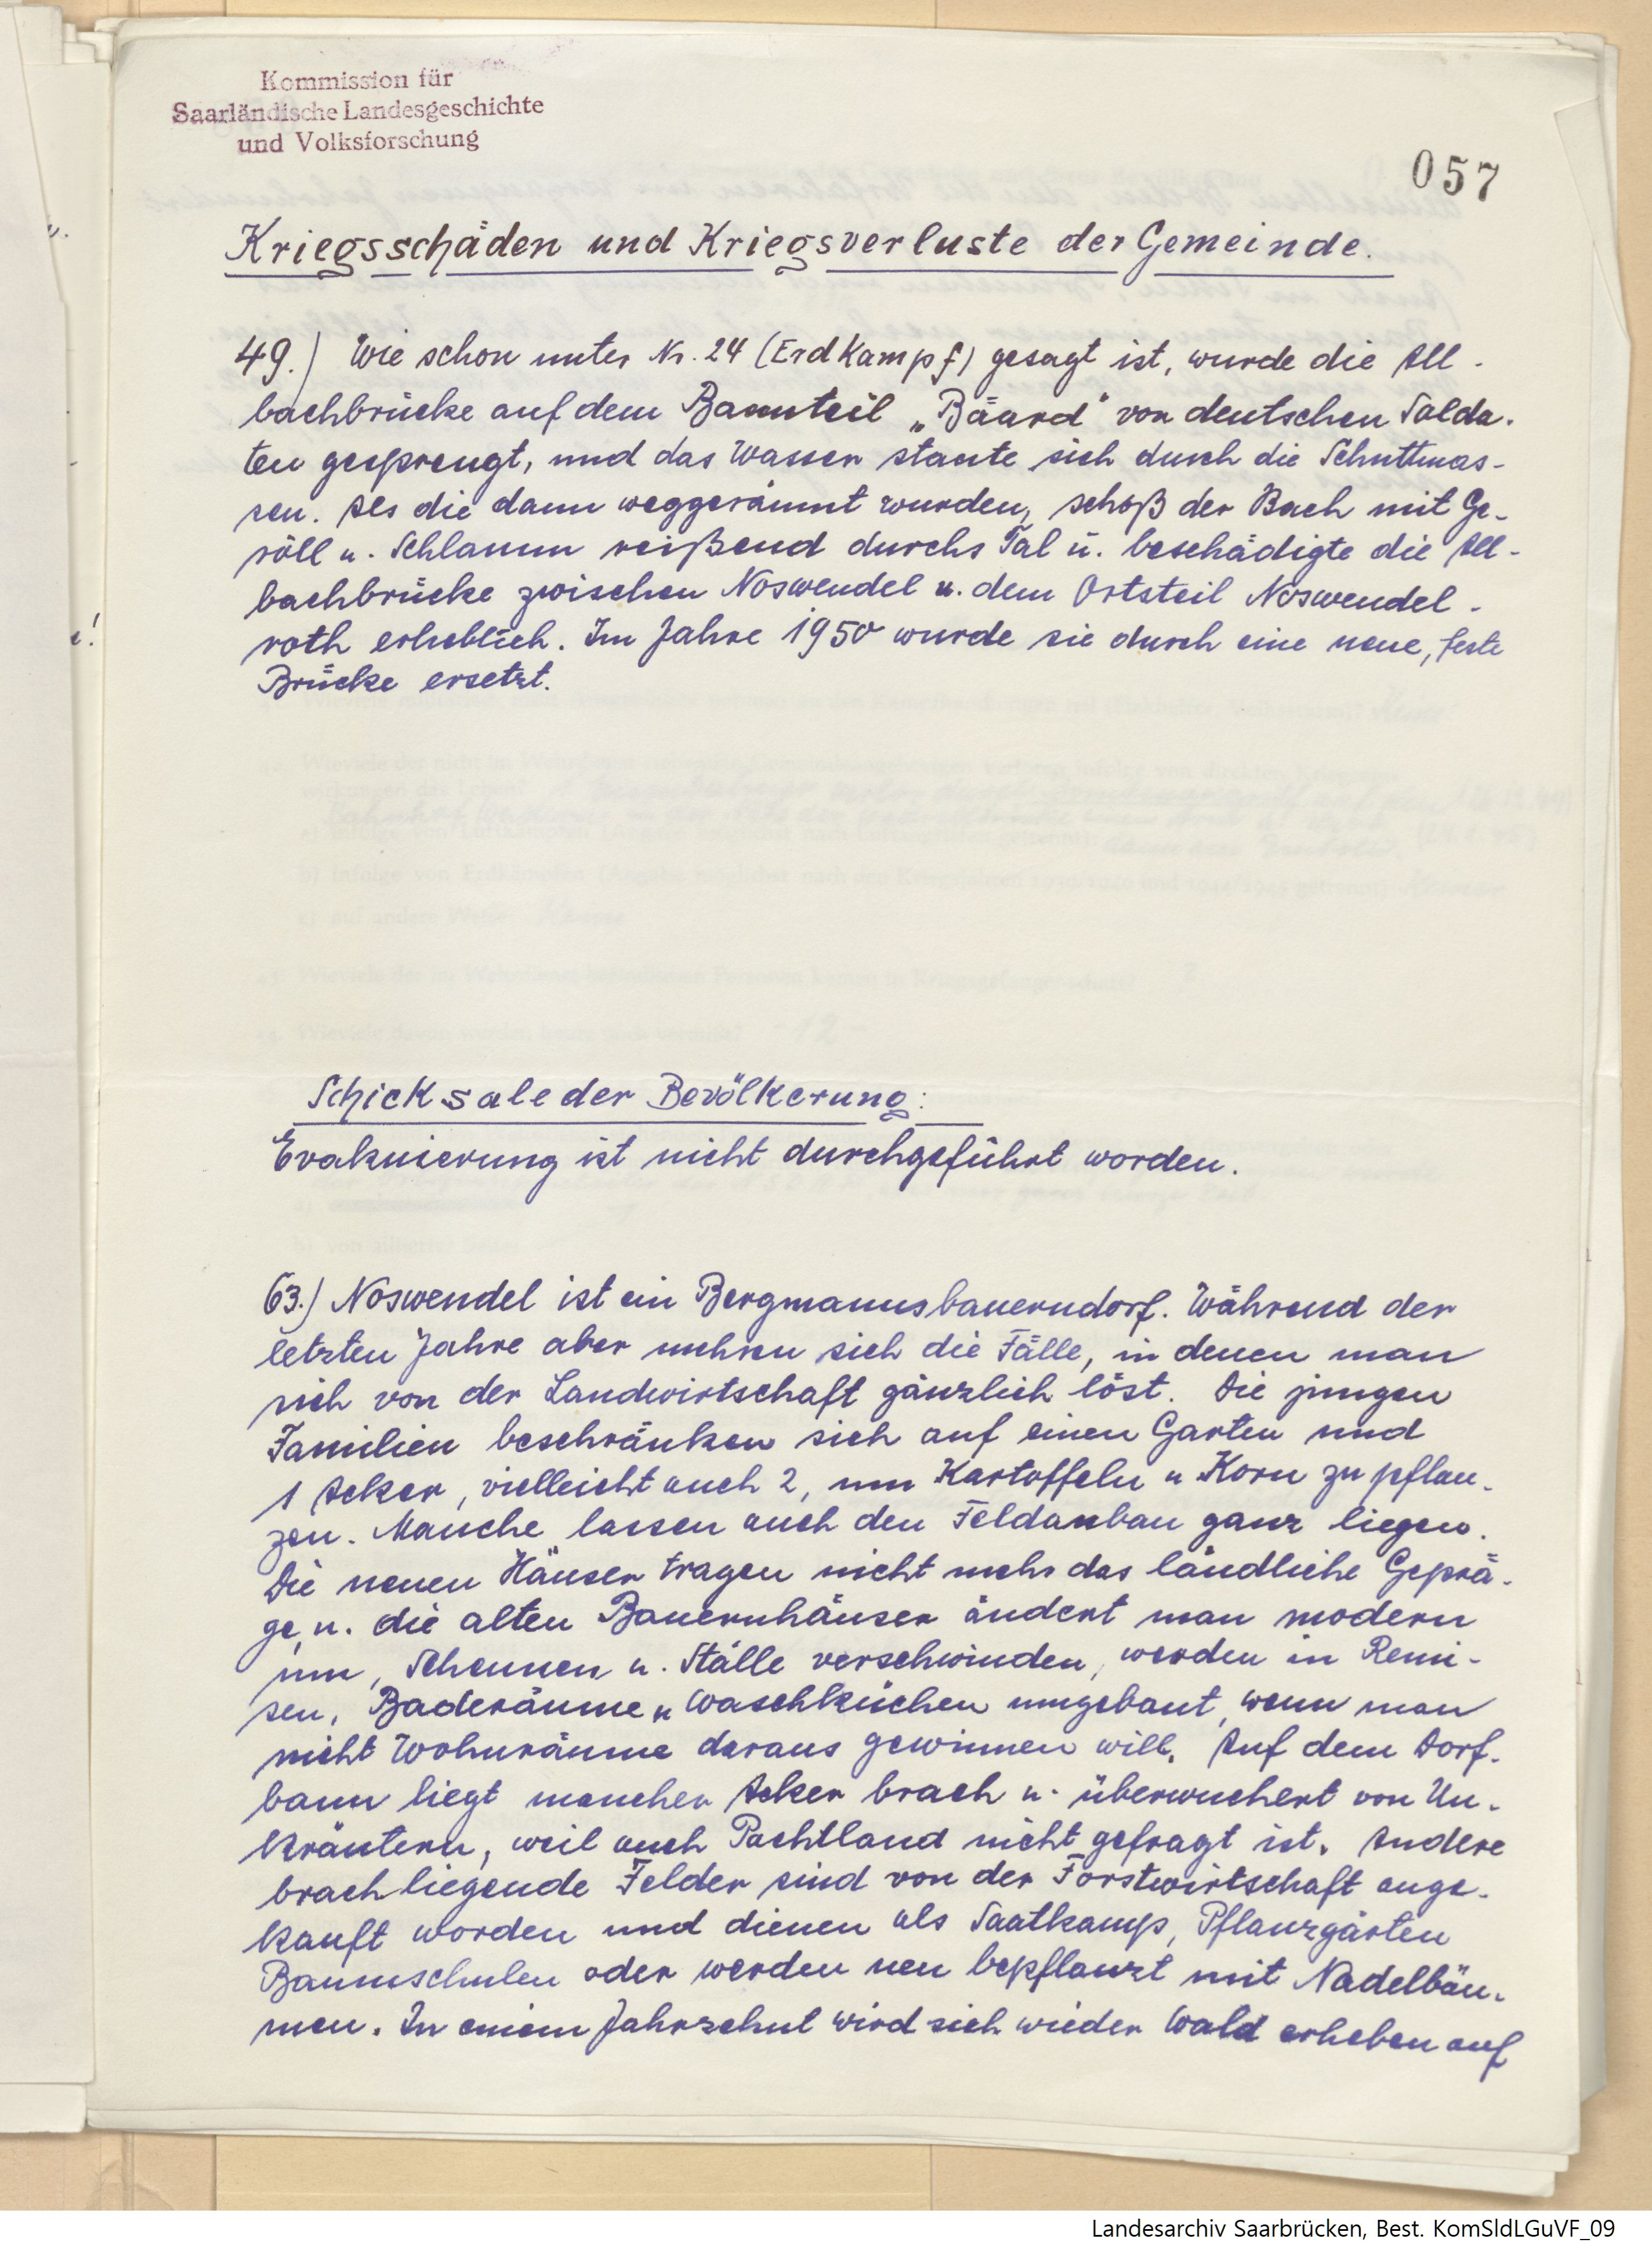 Kommission für
Saarländische Landesgeschichte
und Volksforschung
057
Kriegsschäden und Kriegsverluste der Gemeinde.
49.) Wie schon unter Nr. 24 (Erdkampf) gesagt ist, wurde die All-
bachbrücke auf dem Bannteil „Bäard" von deutschen Solda-
ten gesprengt, und das Wasser staute sich durch die Schuttmas-
sen. Als die dann weggeräumt wurden, schoß der Bach mit Ge-
röll u. Schlamm reißend durchs Tal u. beschädigte die All-
bachbrücke zwischen Noswendel u. dem Ortsteil Noswendel-
roth erheblich. Im Jahre 1950 wurde sie durch eine neue, feste
Brücke ersetzt.
Schicksale der Bevölkerung:
Evakuierung ist nicht durchgeführt worden.
63.) Noswendel ist ein Bergmannsbauerndorf. Während der
letzten Jahre aber mehren sich die Fälle, in denen man
sich von der Landwirtschaft gänzlich löst. Die jungen
Familien beschränken sich auf einen Garten und
1 Acker, vielleicht auch 2, um Kartoffeln u Korn zu pflan-
zen. Manche lassen auch den Feldanbau ganz liegen.
Die neuen Häuser tragen nicht mehr das ländliche Geprä-
ge, u. die alten Bauernhäuser ändert man modern
um, Scheunen u. Ställe verschwinden, werden in Remi-
sen, Baderäume u Waschküchen umgebaut, wenn man
nicht Wohnräume daraus gewinnen will. Auf dem Dorf-
bann liegt mancher Acker brach u. überwuchert von Un-
kräutern, weil auch Pachtland nicht gefragt ist. Andere
brachliegende Felder sind von der Forstwirtschaft ange-
kauft worden und dienen als Saatkamp, Pflanzgärten
Baumschulen oder werden neu bepflanzt mit Nadelbäu-
men. In einem Jahrzehnt wird sich wieder Wald erheben auf
Landesarchiv Saarbrücken, Best. KomSldLGuVF_09